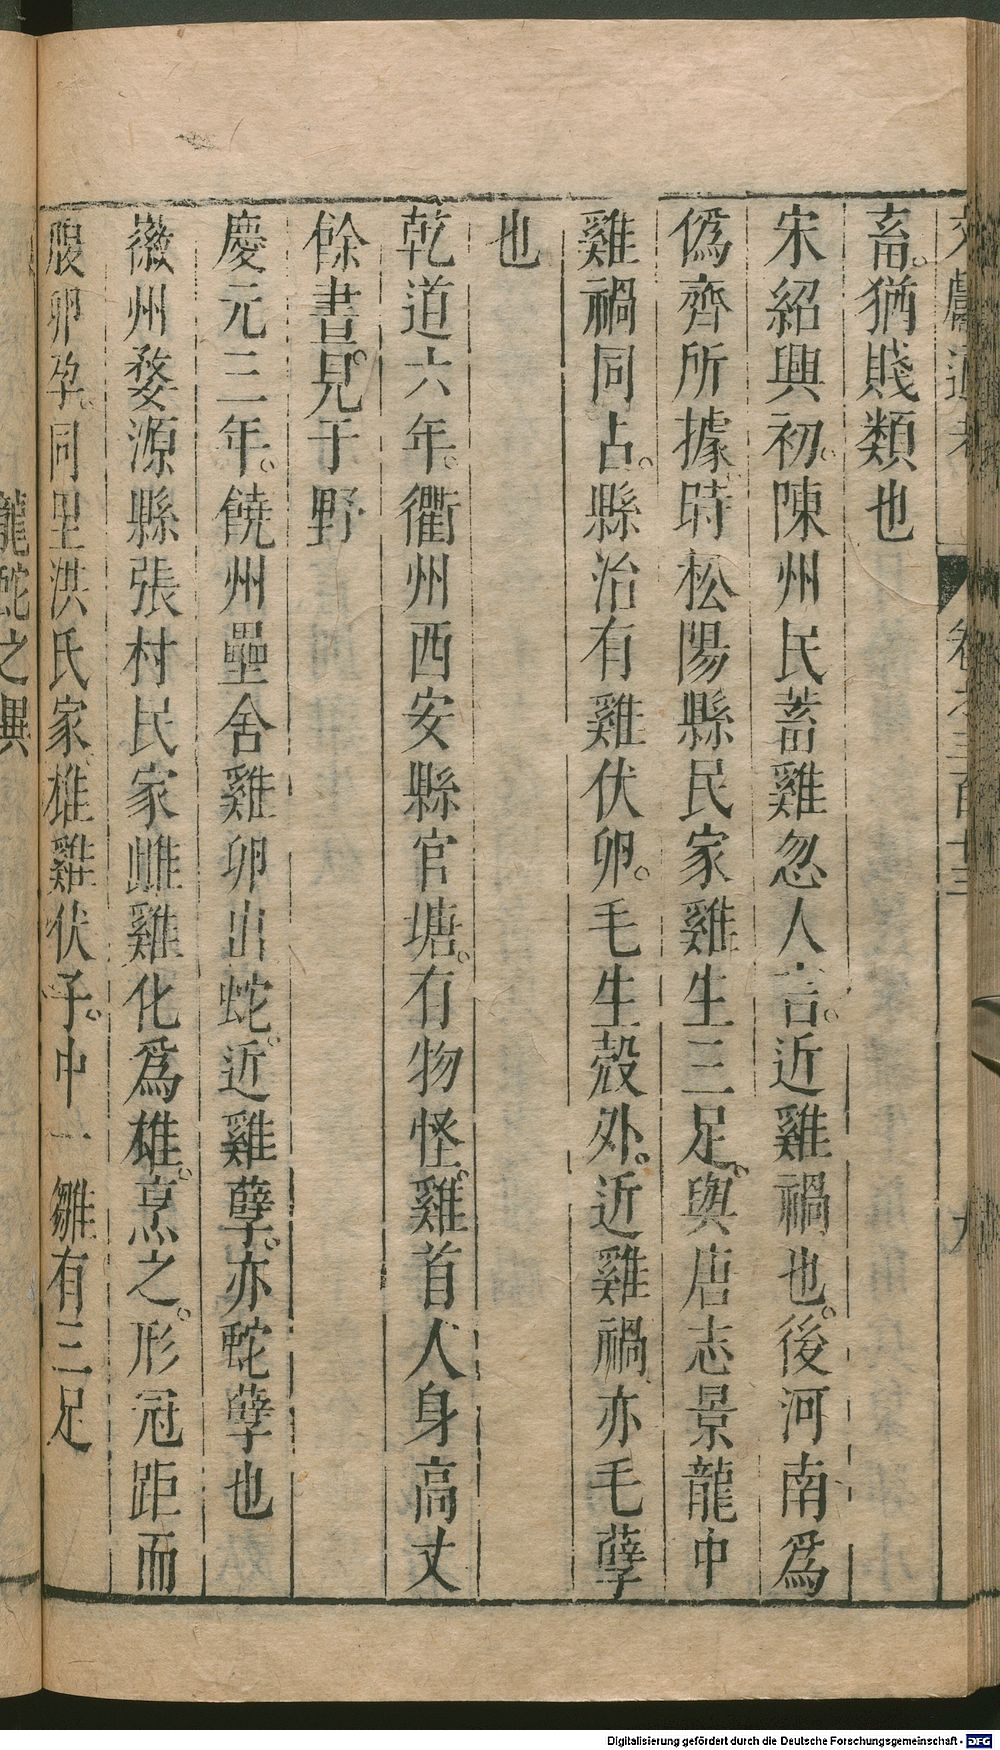 畜。猶賤類也
宋紹興初。陳州民蓄雞忽人言。近雞禍也。後河南爲
僞齊所據。時松陽縣民家雞生三足。與唐志景龍中
雞禍同占。縣治有雞伏卵。毛生殼外。近雞禍亦毛孽
也
乾道六年。衢州西安縣官塘。有物怪。雞首人身高丈
餘晝見于野
慶元三年。饒州壘舍雞卵出蛇。近雞孽。亦蛇孽也
徽州婺源縣張村民家雌雞化爲雄。烹之。形冠距而
腹卵孕。同里洪氏家雄雞伏子。中一雛有三足
龍蛇之異
Digitalisierung gefördert durch die Deutsche Forschungsgemeinschaft - DFG